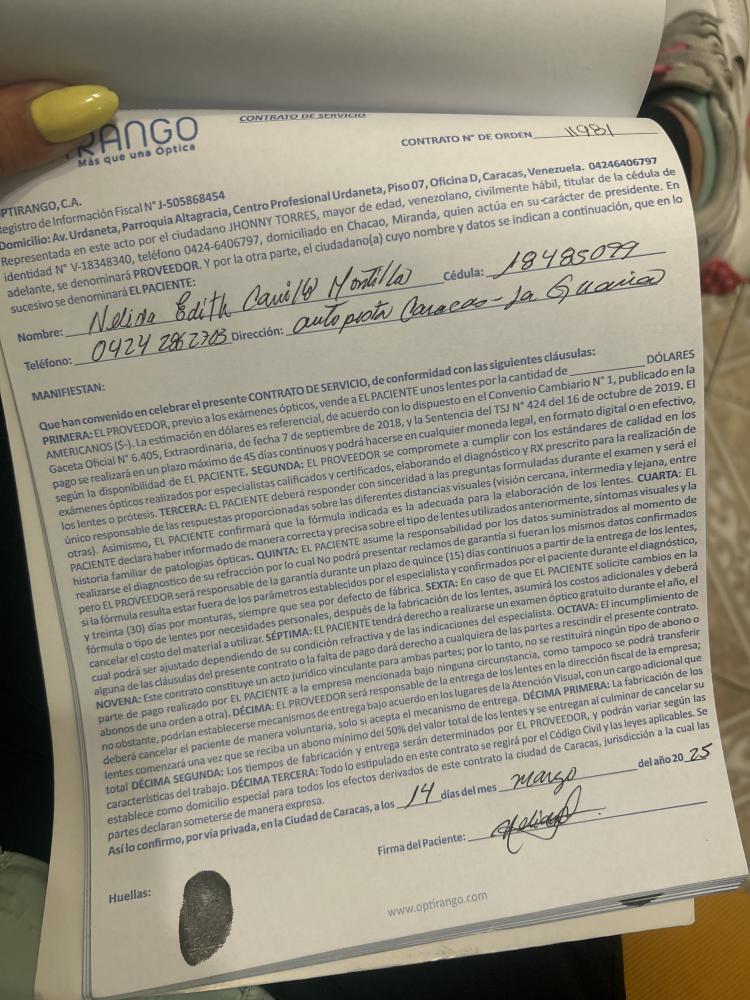 RANGO
Más que una Óptica
CONTRATO DE SERVICIO
CONTRATO N° DE ORDEN 11981
PTIRANGO, C.A.
egistro de Información Fiscal N° J-505868454
Domicilio: Av. Urdaneta, Parroquia Altagracia, Centro Profesional Urdaneta, Piso 07, Oficina D, Caracas, Venezuela. 04246406797
Representada en este acto por el ciudadano JHONNY TORRES, mayor de edad, venezolano, civilmente hábil, titular de la cédula de
identidad N° V-18348340, teléfono 0424-6406797, domiciliado en Chacao, Miranda, quien actúa en su carácter de presidente. En
adelante, se denominará PROVEEDOR. Y por la otra parte, el ciudadano(a) cuyo nombre y datos se indican a continuación, que en lo
sucesivo se denominará EL PACIENTE:
Nombre: Nelida Edith Montilla Cédula: 18485099
Teléfono: 0424 2862703 Dirección: autopista Caracas - La Guaira
MANIFIESTAN:
Que han convenido en celebrar el presente CONTRATO DE SERVICIO, de conformidad con las siguientes cláusulas:
PRIMERA: EL PROVEEDOR, previo a los exámenes ópticos, vende a EL PACIENTE unos lentes por la cantidad de ________ DÓLARES
AMERICANOS ($-). La estimación en dólares es referencial, de acuerdo con lo dispuesto en el Convenio Cambiario N° 1, publicado en la
Gaceta Oficial N° 6.405, Extraordinaria, de fecha 7 de septiembre de 2018, y la Sentencia del TSJ N° 424 del 16 de octubre de 2019. El
pago se realizará en un plazo máximo de 45 días continuos y podrá hacerse en cualquier moneda legal, en formato digital o en efectivo,
según la disponibilidad de EL PACIENTE. SEGUNDA: EL PROVEEDOR se compromete a cumplir con los estándares de calidad en los
exámenes ópticos realizados por especialistas calificados y certificados, elaborando el diagnóstico y RX prescrito para la realización de
los lentes o prótesis. TERCERA: EL PACIENTE deberá responder con sinceridad a las preguntas formuladas durante el examen y será el
único responsable de las respuestas proporcionadas sobre las diferentes distancias visuales (visión cercana, intermedia y lejana, entre
otras). Asimismo, EL PACIENTE confirmará que la fórmula indicada es la adecuada para la elaboración de los lentes. CUARTA: EL
PACIENTE declara haber informado de manera correcta y precisa sobre el tipo de lentes utilizados anteriormente, síntomas visuales y la
historia familiar de patologías ópticas. QUINTA: EL PACIENTE asume la responsabilidad por los datos suministrados al momento de
realizarse el diagnostico de su refracción por lo cual No podrá presentar reclamos de garantía si fueran los mismos datos confirmados
pero EL PROVEEDOR será responsable de la garantía durante un plazo de quince (15) días continuos a partir de la entrega de los lentes,
si la fórmula resulta estar fuera de los parámetros establecidos por el especialista y confirmados por el paciente durante el diagnóstico,
y treinta (30) días por monturas, siempre que sea por defecto de fábrica. SEXTA: En caso de que EL PACIENTE solicite cambios en la
fórmula o tipo de lentes por necesidades personales, después de la fabricación de los lentes, asumirá los costos adicionales y deberá
cancelar el costo del material a utilizar. SÉPTIMA: EL PACIENTE tendrá derecho a realizarse un examen óptico gratuito durante el año, el
cual podrá ser ajustado dependiendo de su condición refractiva y de las indicaciones del especialista. OCTAVA: El incumplimiento de
alguna de las cláusulas del presente contrato o la falta de pago dará derecho a cualquiera de las partes a rescindir el presente contrato.
NOVENA: Este contrato constituye un acto jurídico vinculante para ambas partes; por lo tanto, no se restituirá ningún tipo de abono o
parte de pago realizado por EL PACIENTE a la empresa mencionada bajo ninguna circunstancia, como tampoco se podrá transferir
abonos de una orden a otra). DÉCIMA: EL PROVEEDOR será responsable de la entrega de los lentes en la dirección fiscal de la empresa;
no obstante, podrían establecerse mecanismos de entrega bajo acuerdo en los lugares de la Atención Visual, con un cargo adicional que
deberá cancelar el paciente de manera voluntaria, solo si acepta el mecanismo de entrega. DÉCIMA PRIMERA: La fabricación de los
lentes comenzará una vez que se reciba un abono mínimo del 50% del valor total de los lentes y se entregan al culminar de cancelar su
total DÉCIMA SEGUNDA: Los tiempos de fabricación y entrega serán determinados por EL PROVEEDOR, y podrán variar según las
características del trabajo. DÉCIMA TERCERA: Todo lo estipulado en este contrato se regirá por el Código Civil y las leyes aplicables. Se
establece como domicilio especial para todos los efectos derivados de este contrato la ciudad de Caracas, jurisdicción a la cual las
partes declaran someterse de manera expresa.
Así lo confirmo, por vía privada, en la Ciudad de Caracas, a los 14 días del mes marzo del año 2025
Firma del Paciente:
Huellas:
www.optirango.com